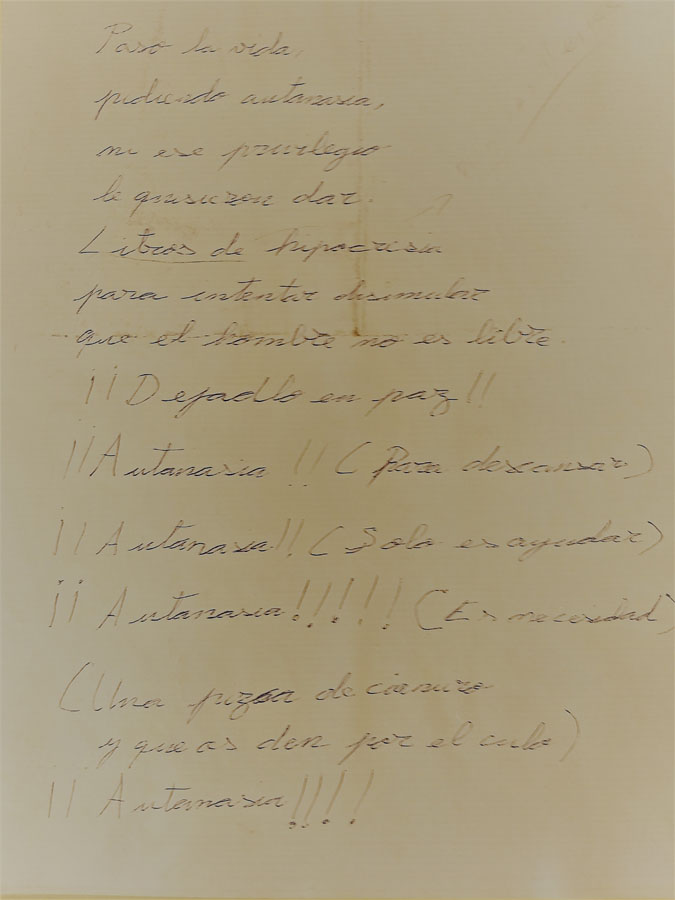 Paso la vida,
pidiendo autanasia,
ni ese privilegio
le quisieron dar.
Litros de hipocresia
para intentar disimular
que el hombre no es libre.
¡¡Dejadlo en paz!!
¡¡Autanasia!! (Para descansar)
¡¡Autanasia!! (Solo es ayudar)
¡¡Autanasia!!!!! (Es necesidad)
(Una pizca de cianuro
y que os den por el culo)
¡¡Autanasia!!!!